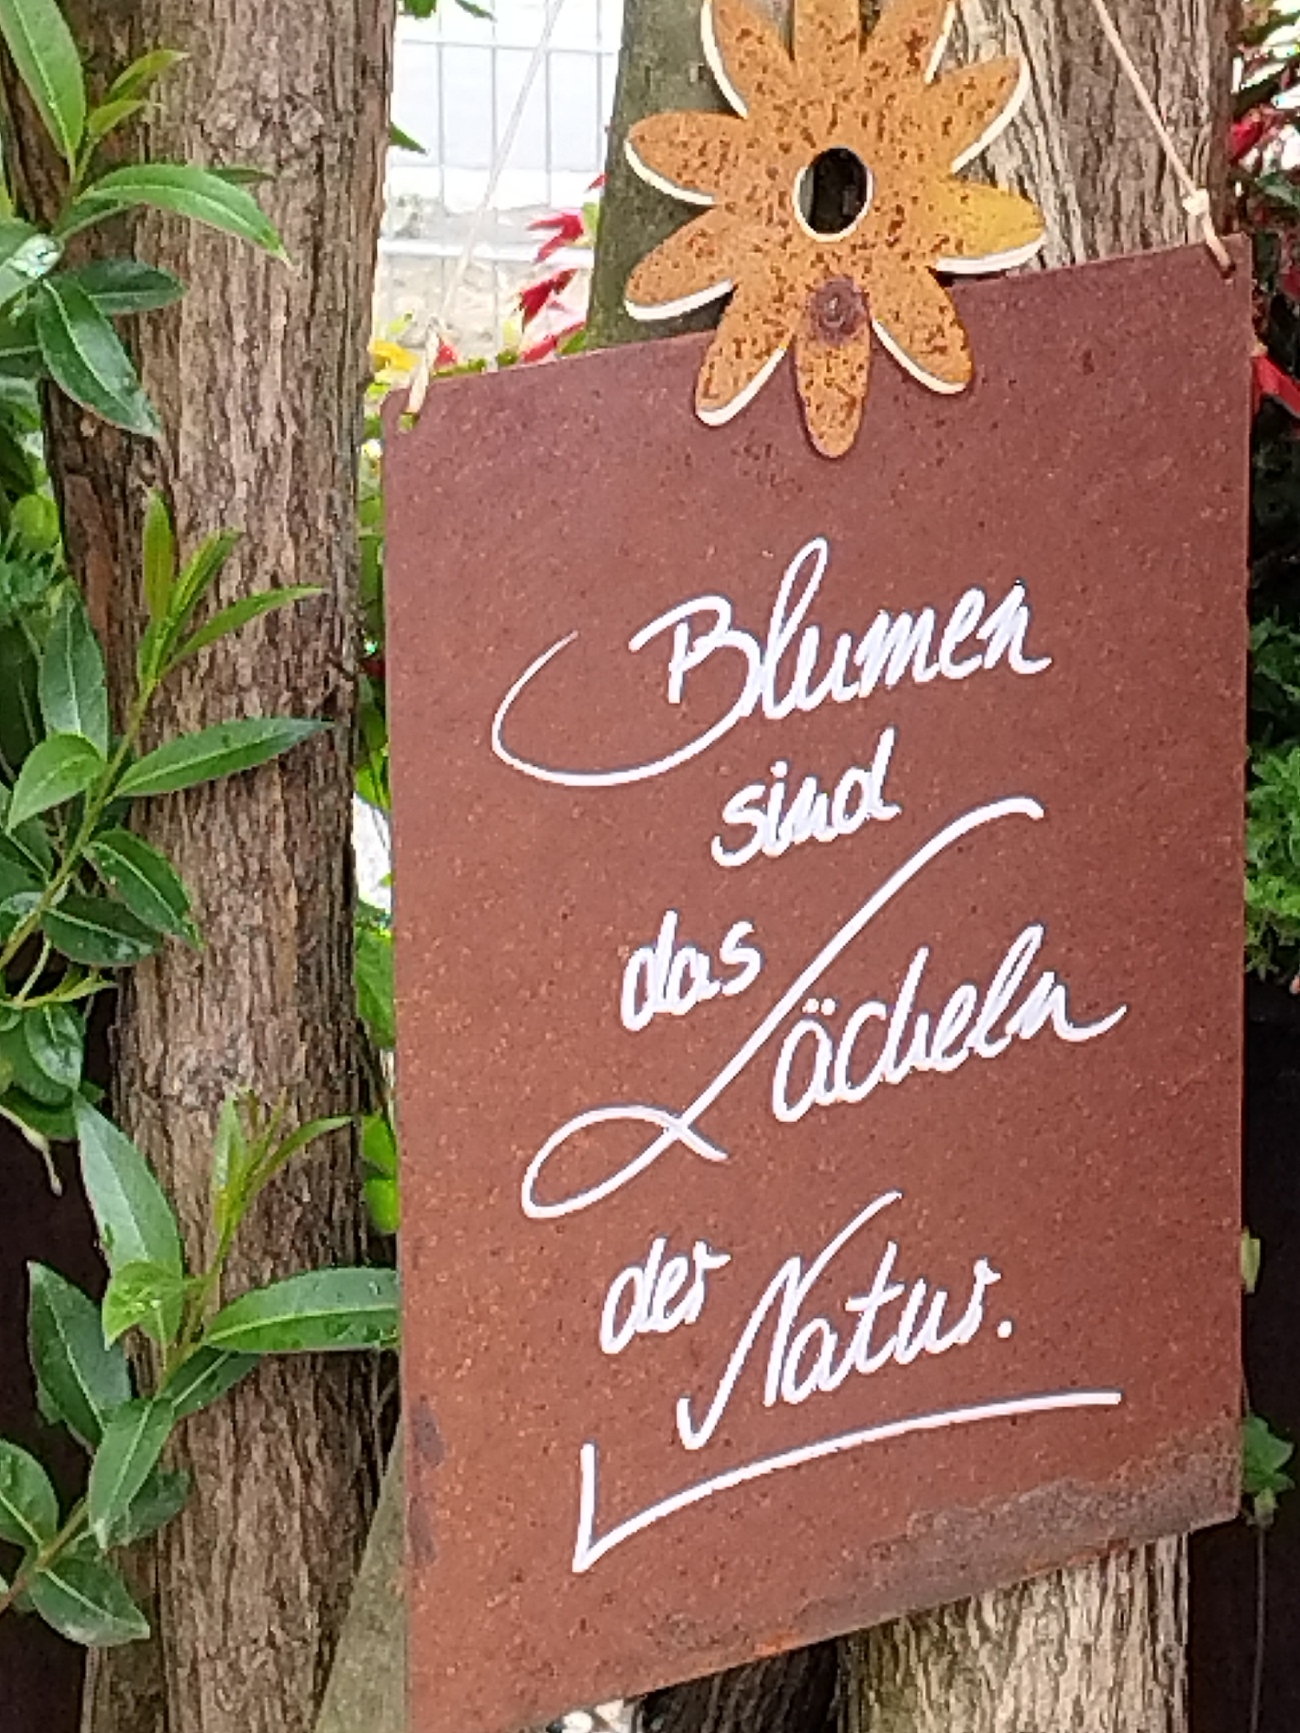 Blumen
sind
das
Lächeln
der Natur.